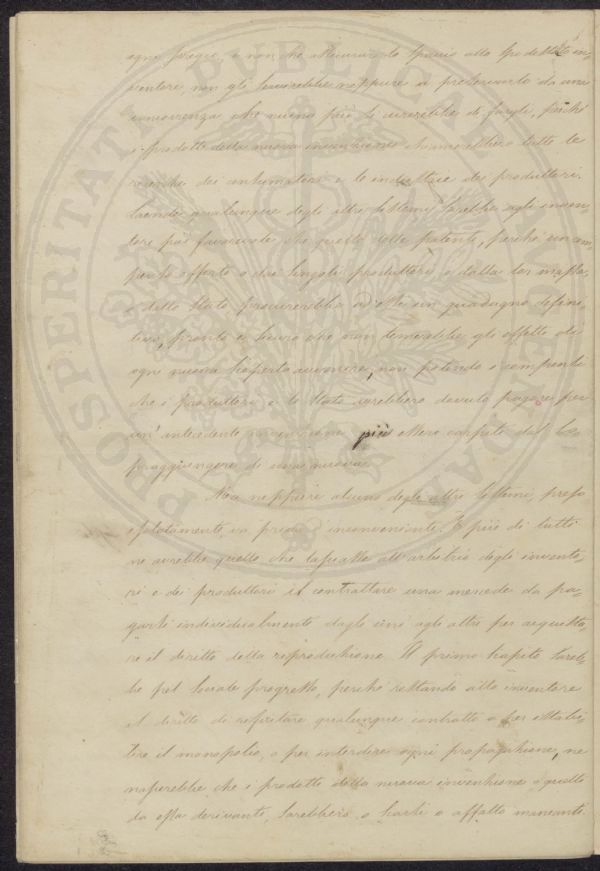 ogni pregio, e non che assicurar lo spaccio allo spodestato in-
ventore, non gli basterebbe neppure a preservarlo da una
concorrenza che nuova più si userebbe di fargli, poichè
i prodotti della nuova invenzione chiamerebbero tutte le
ricerche dei consumatori e le industrie dei produttori.
Laonde qualunque degli altri sistemi sarebbe agli inven-
tori più favorevole che quello delle patenti, perchè un com-
penso offerto o dai singoli produttori, o dalla lor massa,
o dallo Stato procurerebbe ad essi un guadagno defini-
tivo, pronto e sicuro che non temerebbe gli effetti di
ogni nuova scoperta avvenire, non potendo i compensi
che i produttori o lo Stato avrebbero dovuto pagare per
un' antecedente invenzione più essere carpiti dal so-
praggiungere di una nuova.
Ma neppure alcuno degli altri sistemi, preso
isolatamente, va privo d' inconvenienti. E più di tutti
ne avrebbe quello che lasciasse all' arbitrio degli invento-
ri e dei produttori il contrattare una mercede da pa-
garsi individualmente dagli uni agli altri per acquista-
re il diritto della riproduzione. Il primo scapito sareb-
be pel sociale progresso, perchè restando allo inventore
il diritto di rifiutare qualunque contratto o per istabi-
lire il monopolio, o per interdire ogni propagazione, ne
nascerebbe che i prodotti della nuova invenzione o quelli
da essa derivanti, sarebbero o scarsi o affatto mancanti.
PROSPERITATI PUBLICAE